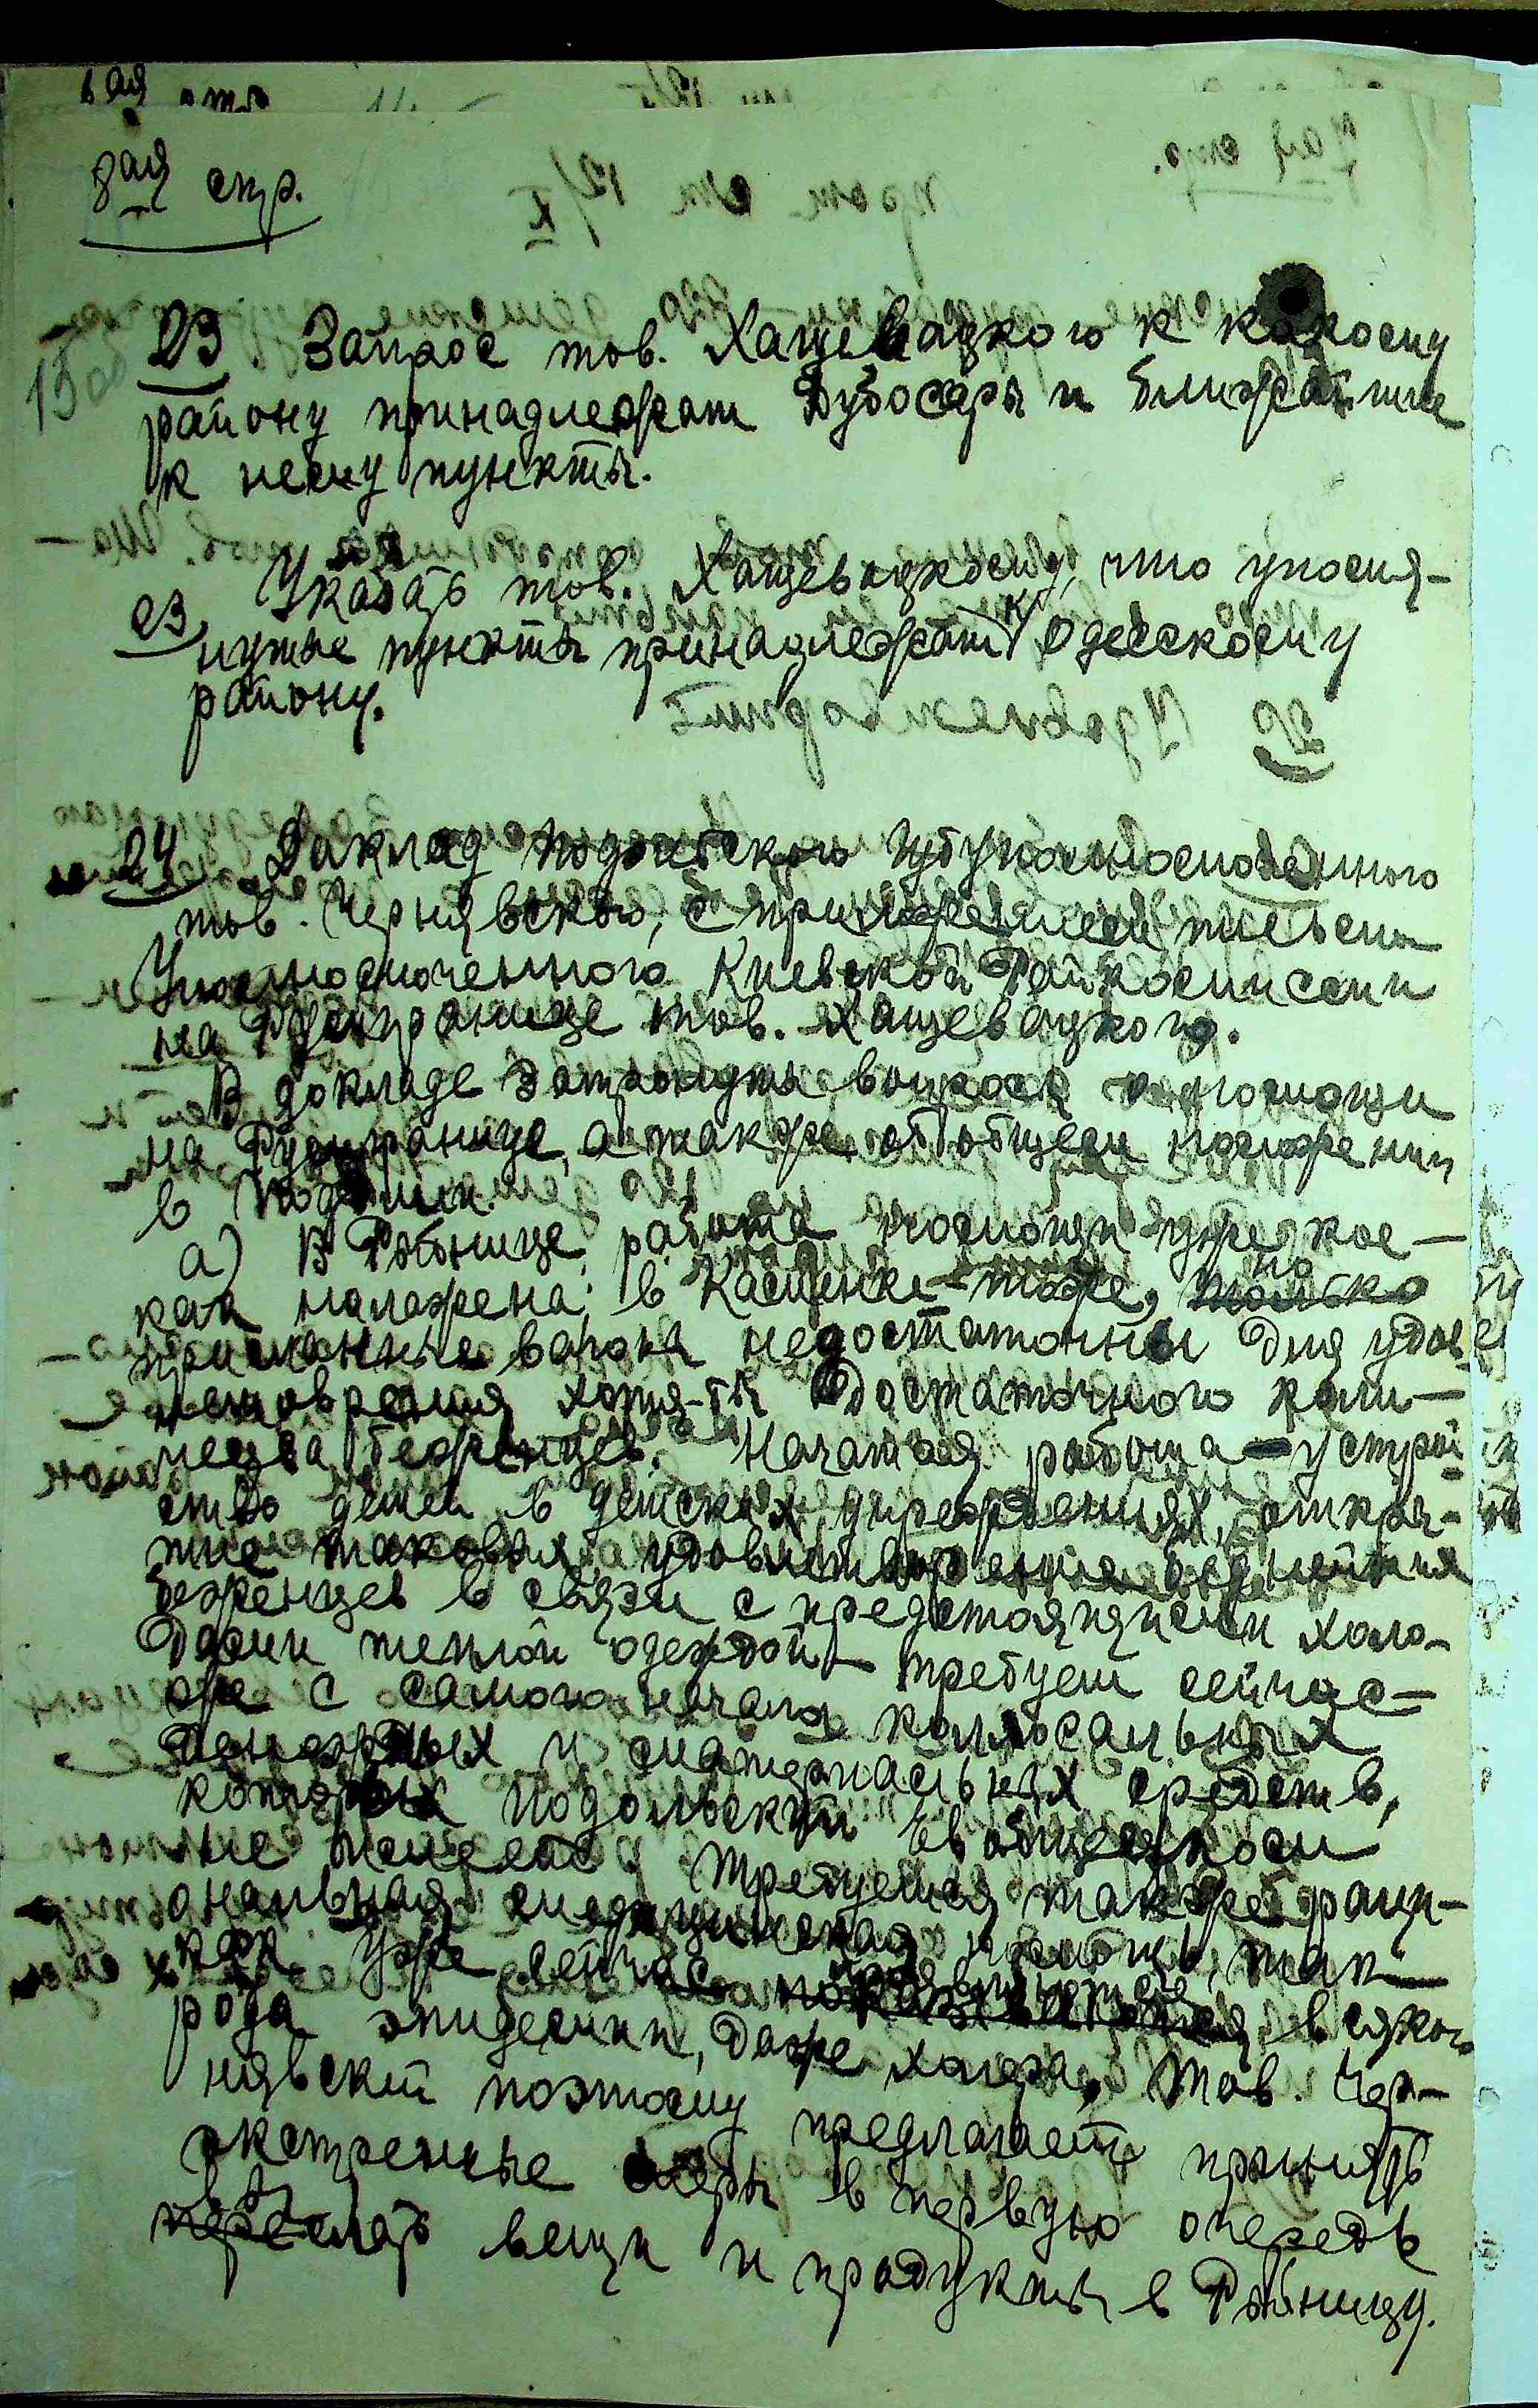 8ая стр.
23. Запрос тов. Хащевацкого к какому
району принадлежат Дубосары и ближайшие
к нему пункты.
23. Указать тов. Хащевацкому, что упомя-
нутые пункты принадлежат к Одесскому
району.
24. Доклад Подольского Губуполномоченного
тов. Чернявского, с приложением письма
Уполномоченного Киевской Райкомиссии
на Румгранице тов. Хащевацкого.
В докладе затронуты вопросы о помощи
на Румгранице, а также об общем положении
в Подолии.
а) В Рыбнице работа помощи уже кое-
как налажена; в Каменке - тоже, но
присланные вагоны недостаточны для удов-
летворения хотя-бы достаточного коли-
чества беженцев. Начатая работа - устрой
ство детей в детских учреждениях, откры-
тие таковых, удовлетворение беднейших
беженцев в связи с предстоящими холо-
дами теплой одеждой - требует сейчас-
же с самого начала колоссальных
денежных и материальных средств,
которых Подольский Евобщестком
не имеет. Требуется также раци-
ональная медицинская помощь, так
как уже сейчас всякого
рода эпидемии, даже холера. Тов. Чер-
нявский поэтому предлагает принять
экстренные меры в первую очередь
выслать вещи и продукты в Рыбницу.